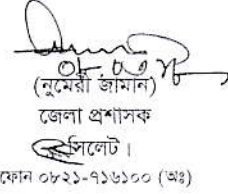 ০৮.০৩
(নুমেরী জামান)
জেলা প্রশাসক
সিলেট।
ফোন ০৮২১-৭১৬১০০ (অঃ)